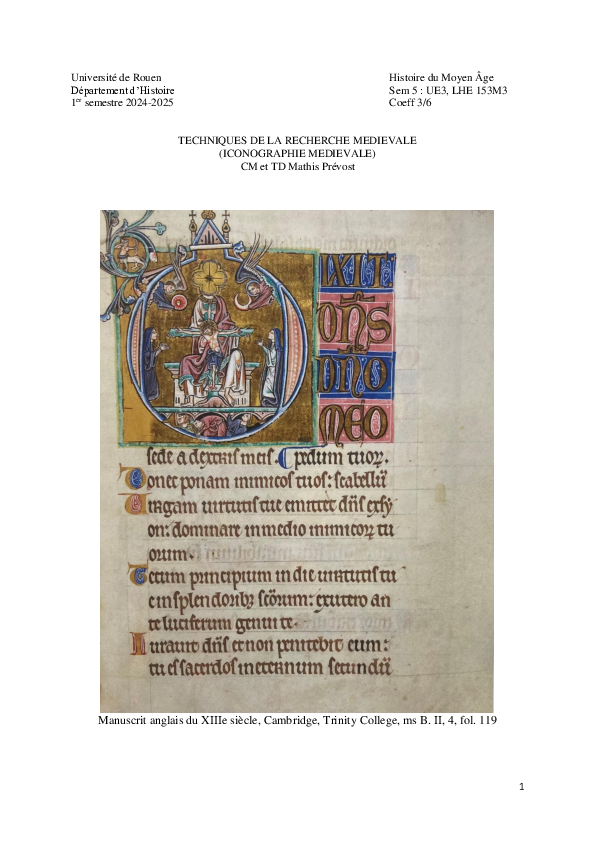 Université de Rouen
Département d'Histoire
1er semestre 2024-2025
Histoire du Moyen Âge
Sem 5 : UE3, LHE 153M3
Coeff 3/6
TECHNIQUES DE LA RECHERCHE MEDIEVALE
(ICONOGRAPHIE MEDIEVALE)
CM et TD Mathis Prévost
DIXIT
DN̄S
DNO
MEO
sede a dextris meis. pedum tuoꝝ.
Donec ponam inimicos tuos: scabellū
Uirgam uirtutis tue emittet dn̄s ex sy
on: dominare in medio inimicoꝝ tu
orum.
Tecum principium in die uirtutis tu
e in splendoribꝫ sc̄orum: ex utero an
te luciferum genui te.
Iurauit dn̄s et non penitebit eum:
tu es sacerdos in eternum secundū
Manuscrit anglais du XIIIe siècle, Cambridge, Trinity College, ms B. II, 4, fol. 119
1